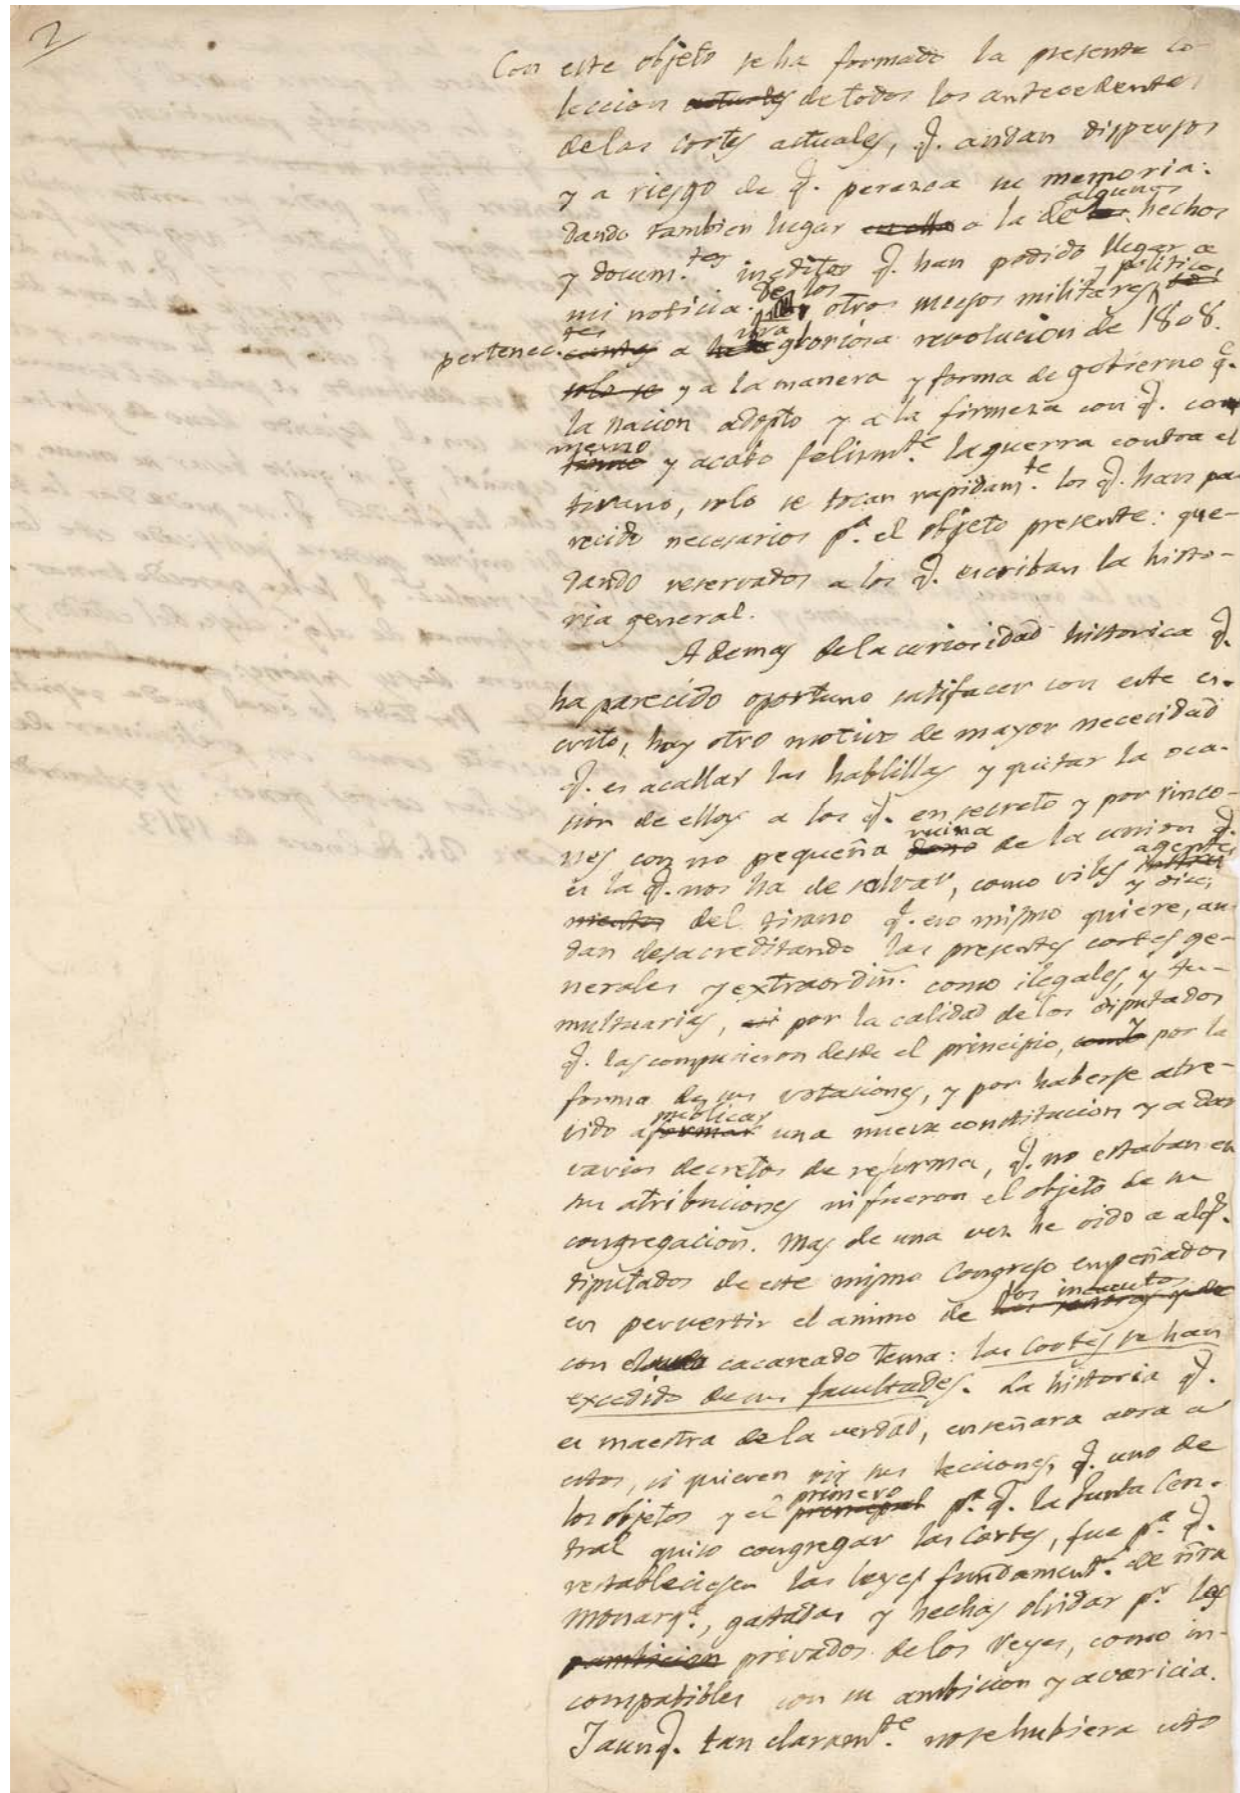 2
Con este objeto se ha formado la presente co-
leccion de todos los antecedentes
de las cortes actuales, q. andan dispersos
y a riesgo de q. perezca su memoria:
algunos
dando tambien lugar en ella a la de los hechos
y docum.tos ineditos q. han podido llegar a
y politicos
mi noticia. De los otros sucesos militares
tes nra
pertenec. a la gloriosa revolucion de 1808.
solo se y a la manera y forma de gobierno q.e
la nacion adopto y a la firmeza con q. co
menzo
y acabo felizm.te la guerra contra el
tirano, solo se tocan rapidam.te los q. han pa-
recido necesarios p.a el objeto presente: que-
dando reservados a los q. escriban la histo-
ria general.
Ademas de la curiosidad historica q.
ha parecido oportuno satisfacer con este es-
crito, hay otro motivo de mayor necesidad
q. es acallar las hablillas y quitar la oca-
sion de ellas a los q. en secreto y por rinco-
ruina
nes con no pequeña daño de la union q.
agentes
es la q. nos ha de salvar, como viles
y dise
del tirano q. eso mismo quiere, an-
dan desacreditando las presentes cortes ge-
nerales y extraordin. como ilegales, y tu-
multuarias, asi por la calidad de los diputados
y
q. las compusieron desde el principio, como por la
forma de sus votaciones, y por haberse atre-
publicar
vido a formar una nueva constitucion y a dar
varios decretos de reforma, q. no estaban en
su atribuciones ni fueron el objeto de su
congregacion. Mas de una vez he oido a alg.
diputados de este mismo Congreso empeñados
los incautos
en pervertir el animo de
con el cacareado tema: las Cortes se han
excedido de sus facultades. La historia q.
es maestra de la verdad, enseñara aora a
estos, si quieren oir sus lecciones, q. uno de
primero
los objetos y el principal p.a q. la Junta Cen-
tral quiso congregar las Cortes, fue p.a q.
restableciesen las leyes fundament.s de nra
Monarq.a, gastadas y hechas olvidar p.r los
privados de los Reyes, como in-
compatibles con su ambicion y avaricia.
Y aunq. tan claram.te no se hubiera